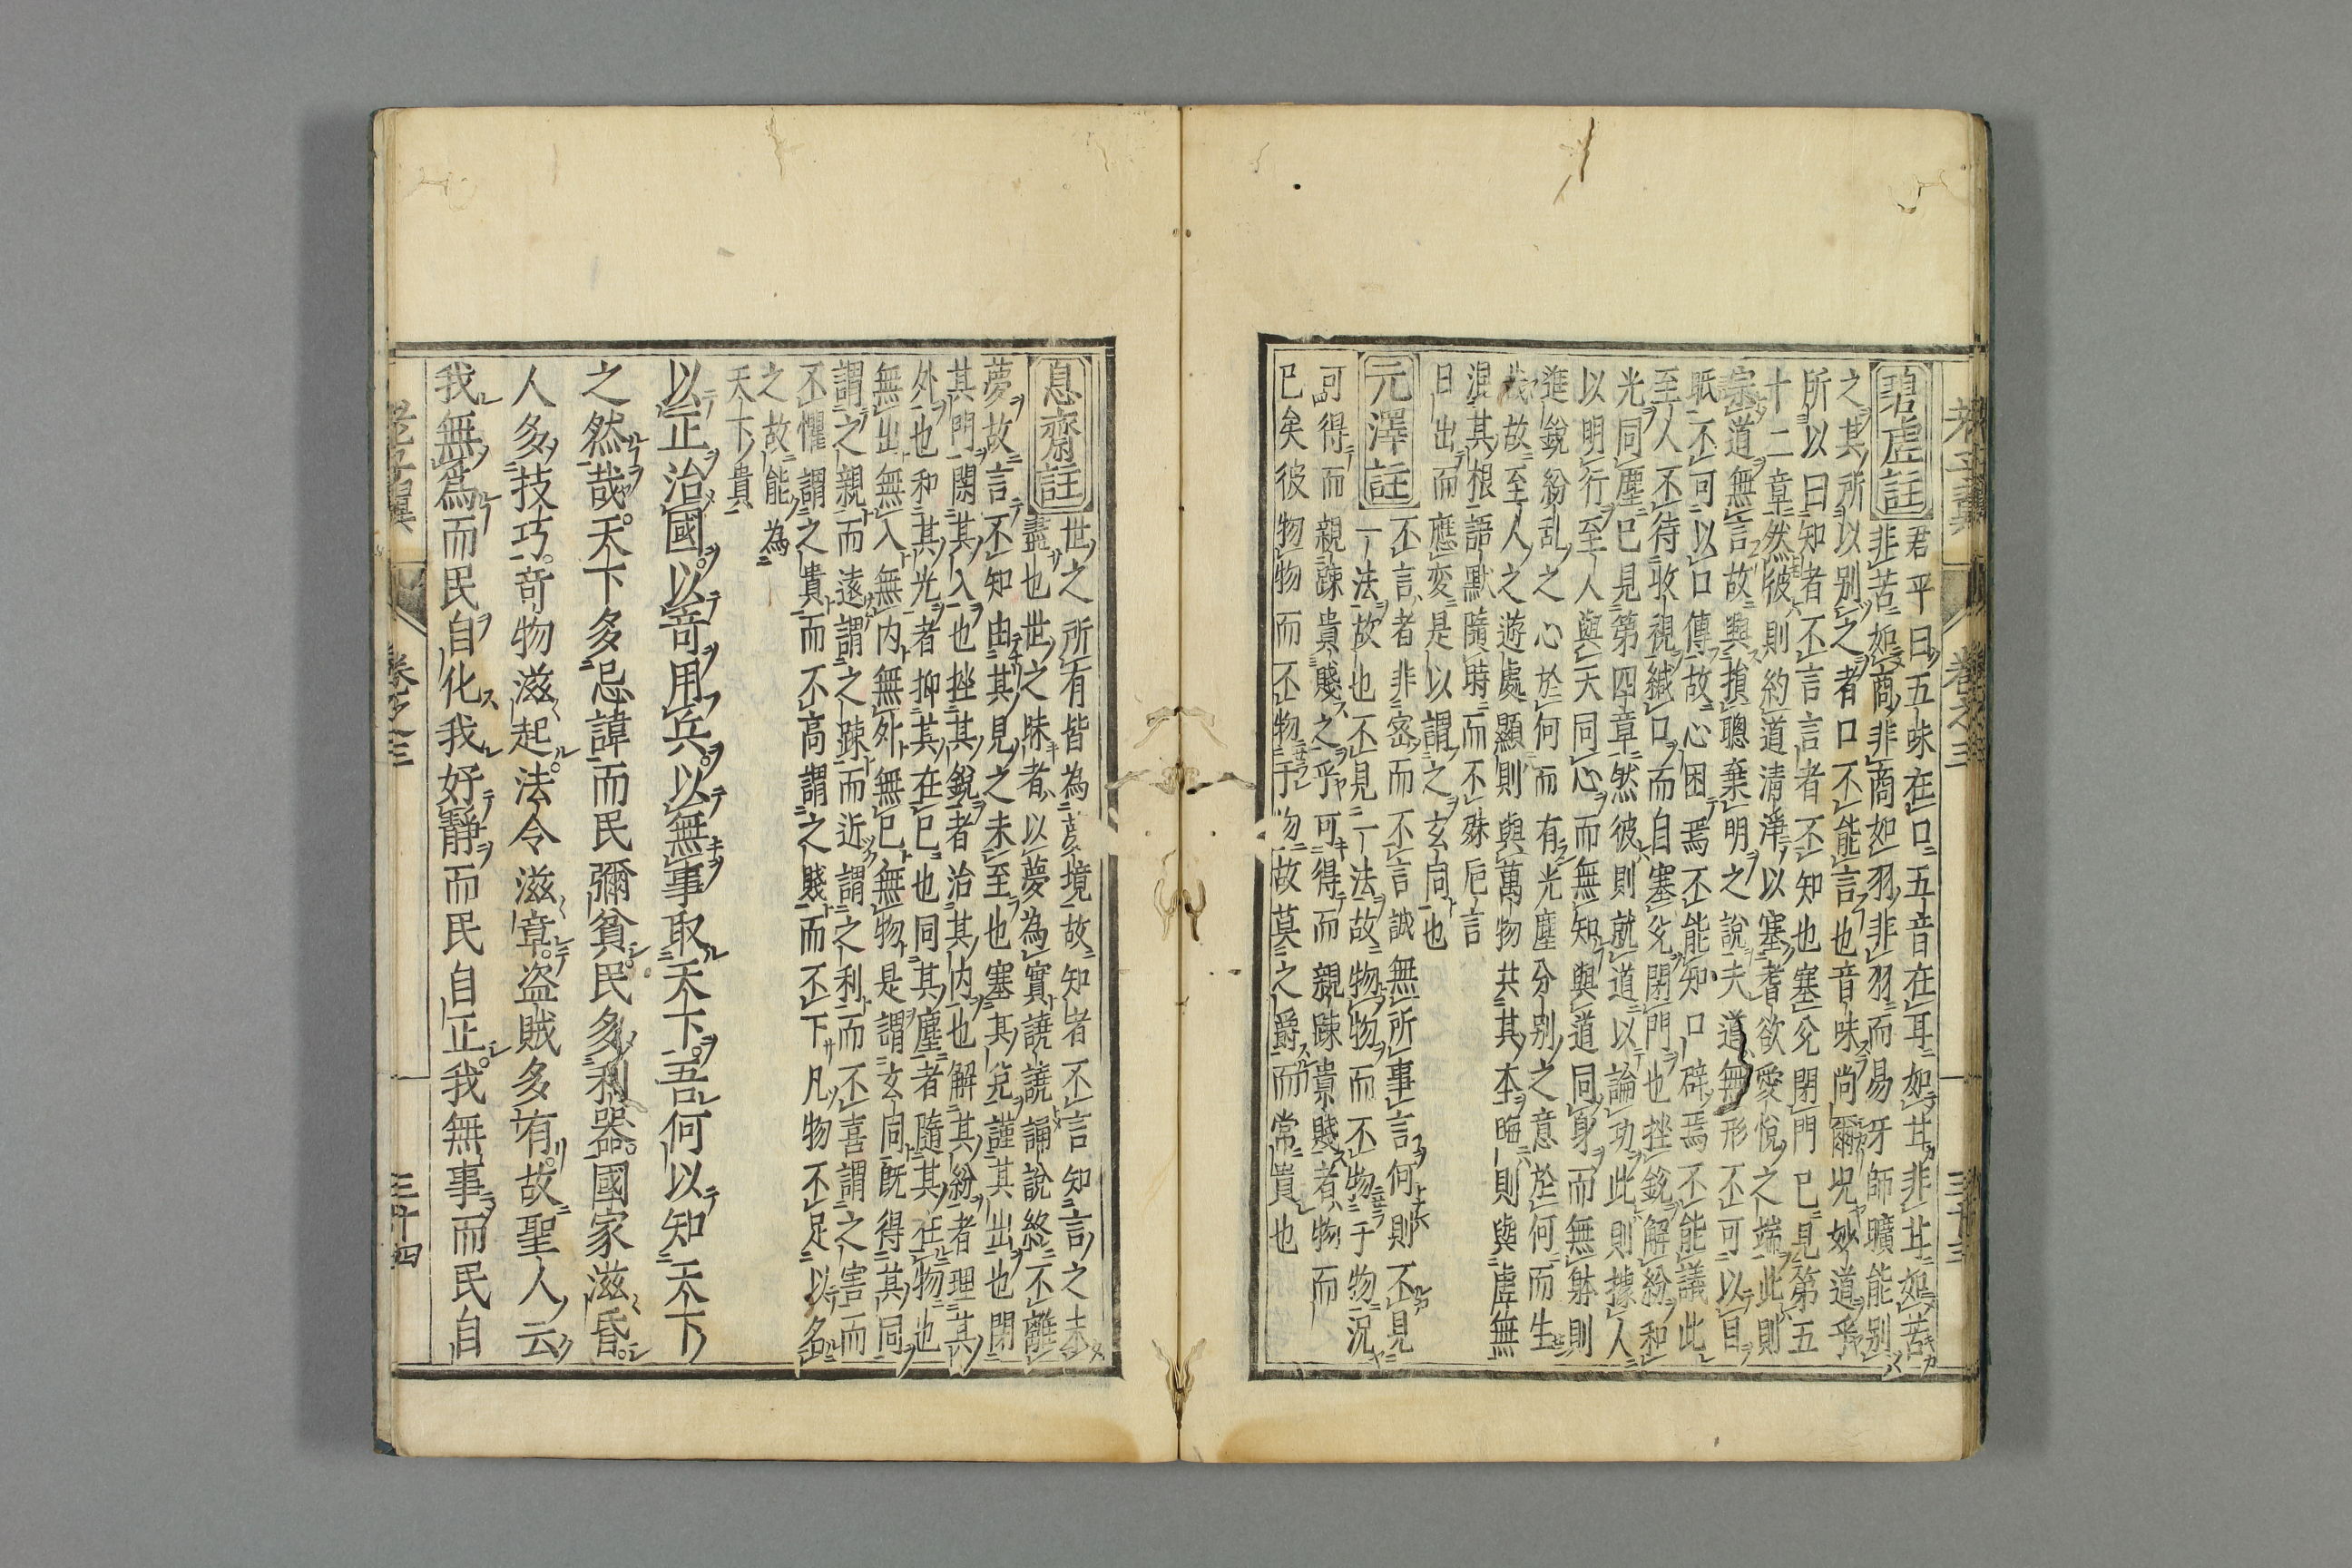 碧虛註 君平曰五味在口五音在耳如甘非甘如苦
非苦如商非商如羽非羽而易牙師曠能別
之其所以別之者口不能言也音味尚爾況妙道乎
所以曰知者不言言者不知也塞兌閉門已見第五
十二章然彼則約道清淨以塞耆欲愛悅之端此則
宗道無言故與損聰棄明之說夫道無形不可以目
眂不可以口傳故心困焉不能知口辟焉不能議此
至人不待收視緘口而自塞兌閉門也挫銳解紛和
光同塵已見第四章然彼則就道以論功此則據人
以明行至人與天同心而無知與道同身而無躰則
進銳紛乱之心於何而有光塵分别之意於何而生
哉故至人之遊處顯則與萬物共其本晦則與虛無
混其根語默隨時而不殊卮言
日出而應変是以謂之玄同也
元澤註 不言者非密而不言誠無所事言何則不見
一法故也不見一法故物物而不物于物況
可得而親踈貴賤之乎可得而親踈貴賤者物而
已矣彼物物而不物于物故莫之爵而常貴也
老子翼 卷之三 三十三
息齋註 世之所有皆為境故知者不言知言之未
盡也世之昧者以夢為實譊譊誦說終不離
夢故言不知由其見之未至也塞其兌謹其出也閉
其門閑其入也挫其銳者治其内也解其紛者理其
外也和其光者抑其在己也同其塵者隨其在物也
無出無入無内無外無己無物是謂玄同既得其同
謂之親而遠謂之踈而近謂之利而不喜謂之害而
不懼謂之貴而不高謂之賤而不下凡物不足以名
之故能為
天下貴
以正治國以竒用兵以無事取天下吾何以知天下
之然哉天下多忌諱而民彌貧民多利器國家滋昏
人多技巧竒物滋起法令滋章盗賊多有故聖人云
我無為而民自化我好靜而民自正我無事而民自
老子翼 卷之三 三十四